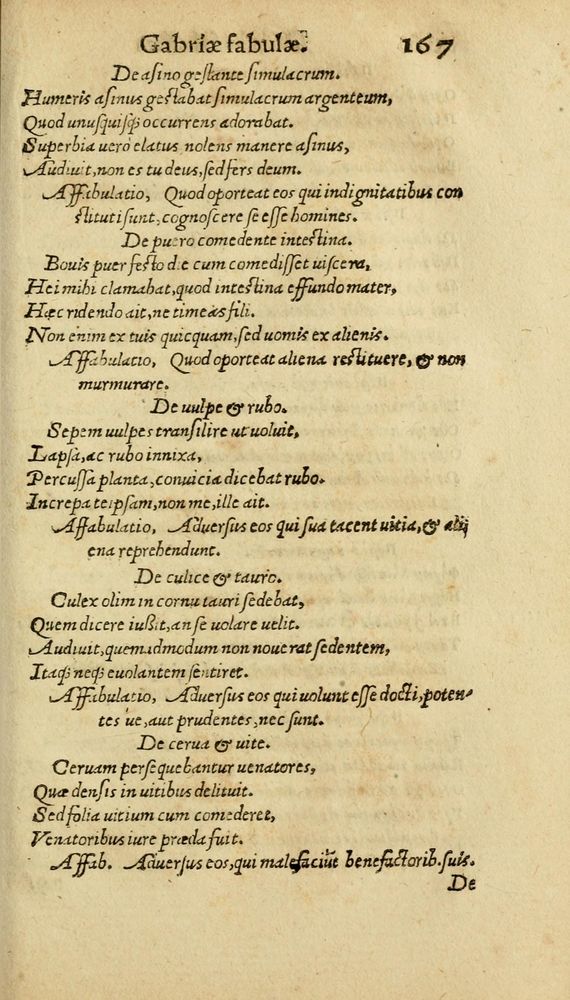 Gabriæ fabulæ. 167
De asino gestante simulacrum.
Humeris asinus gestabat simulacrum argenteum,
Quod unusquisq; occurrens adorabat.
Superbia uero elatus nolens manere asinus,
Audiuit, non es tu deus, sed fers deum.
Affabulatio, Quod oporteat eos qui in dignitatibus con
stituti sunt, cognoscere se esse homines.
De puero comedente intestina.
Bouis puer festo die cum comedisset uiscera,
Hei mihi clamabat, quod intestina effundo mater,
Hæc ridendo ait, ne timeas fili.
Non enim ex tuis quicquam, sed uomis ex alienis.
Affabulatio, Quod oporteat aliena restituere, & non
murmurare.
De uulpe & rubo.
Sepem uulpes transilire ut uoluit,
Lapsa, ac rubo innixa,
Percussa planta, conuicia dicebat rubo.
Increpa teipsam, non me, ille ait.
Affabulatio, Aduersus eos qui sua tacent uitia, & ali
ena reprehendunt.
De culice & tauro.
Culex olim in cornu tauri sedebat,
Quem dicere iußit, an se uolare uelit.
Audiuit, quemadmodum non nouerat sedentem,
Itaq; neq; euolantem sentiret.
Affabulatio, Aduersus eos qui uolunt esse docti, poten-
tes ue, aut prudentes, nec sunt.
De cerua & uite.
Ceruam persequebantur uenatores,
Quæ densis in uitibus delituit.
Sed folia uitium cum comederet,
Venatoribus iure præda fuit.
Affab. Aduersus eos, qui malefaciũt benefactorib. suis.
De